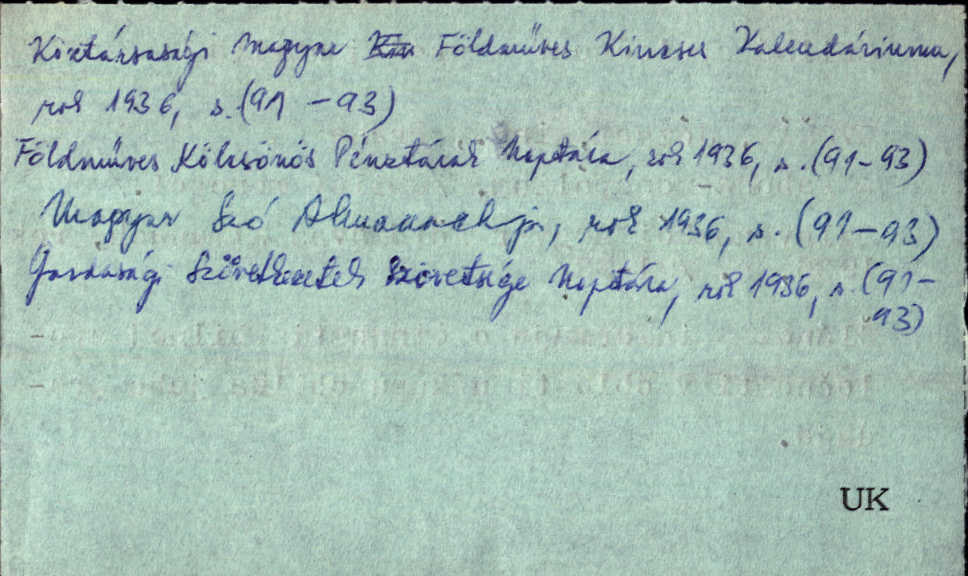 Köztársasági Magyar Földműves Kincses Kalendáriuma,
rok 1936, s. (91 - 93)
Földműves Kölcsönös Pénztárak Naptára, rok 1936, s. (91-93)
Magyar Szó Almanachja, rok 1936, s. (91-93)
Gazdasági Szövetkezetek Szövetsége Naptára, rok 1936, s. (91-
93)
UK